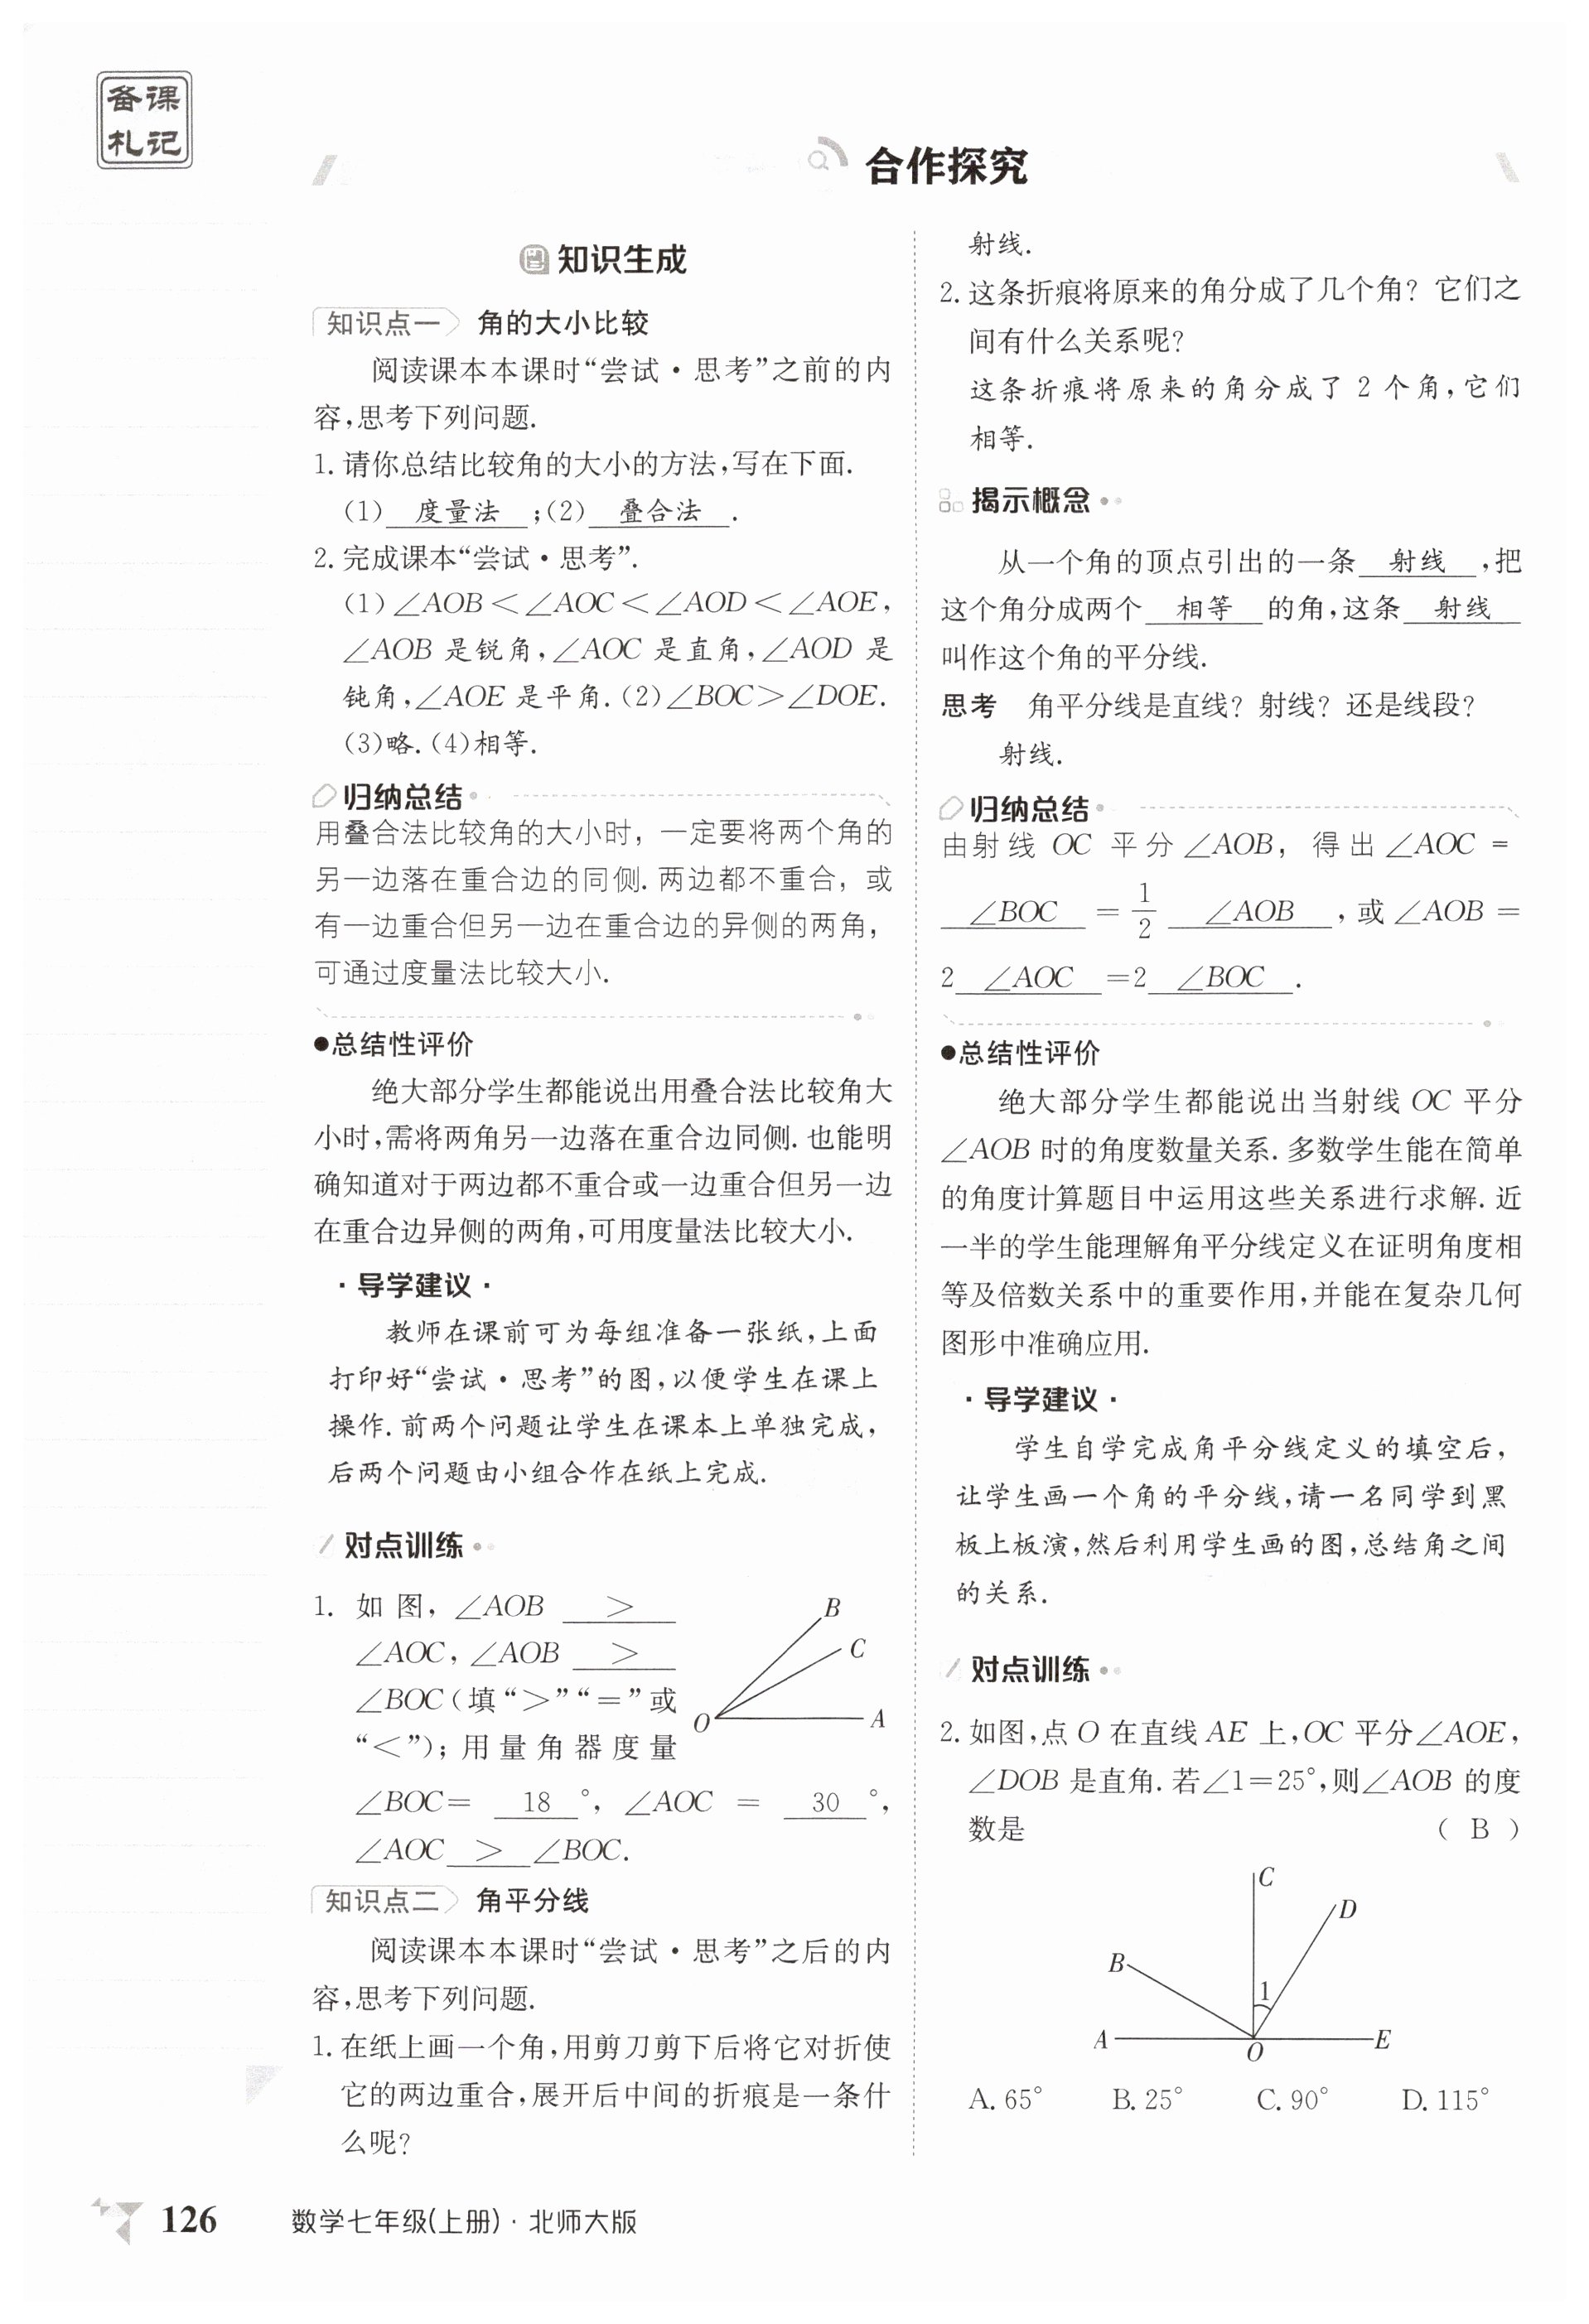 备课
札记
合作探究
知识生成
知识点一 角的大小比较
阅读课本本课时“尝试·思考”之前的内
容,思考下列问题.
1.请你总结比较角的大小的方法,写在下面.
(1) 度量法 ;(2) 叠合法 .
2.完成课本“尝试·思考”.
(1)∠AOB<∠AOC<∠AOD<∠AOE,
∠AOB 是锐角,∠AOC 是直角,∠AOD 是
钝角,∠AOE 是平角.(2)∠BOC>∠DOE.
(3)略.(4)相等.
归纳总结
用叠合法比较角的大小时，一定要将两个角的
另一边落在重合边的同侧.两边都不重合，或
有一边重合但另一边在重合边的异侧的两角，
可通过度量法比较大小.
●总结性评价
绝大部分学生都能说出用叠合法比较角大
小时,需将两角另一边落在重合边同侧.也能明
确知道对于两边都不重合或一边重合但另一边
在重合边异侧的两角,可用度量法比较大小.
·导学建议·
教师在课前可为每组准备一张纸,上面
打印好“尝试·思考”的图,以便学生在课上
操作.前两个问题让学生在课本上单独完成,
后两个问题由小组合作在纸上完成.
对点训练
1. 如图,∠AOB >
∠AOC,∠AOB >
∠BOC(填“>”“=”或
“<”);用量角器度量
∠BOC= 18 °,∠AOC = 30 °,
∠AOC > ∠BOC.
B
C
O
A
知识点二 角平分线
阅读课本本课时“尝试·思考”之后的内
容,思考下列问题.
1.在纸上画一个角,用剪刀剪下后将它对折使
它的两边重合,展开后中间的折痕是一条什
么呢?
射线.
2.这条折痕将原来的角分成了几个角? 它们之
间有什么关系呢?
这条折痕将原来的角分成了 2 个角,它们
相等.
揭示概念
从一个角的顶点引出的一条 射线 ,把
这个角分成两个 相等 的角,这条 射线
叫作这个角的平分线.
思考 角平分线是直线? 射线? 还是线段?
射线.
归纳总结
由射线 OC 平分∠AOB，得出∠AOC =
∠BOC = 1/2 ∠AOB ,或∠AOB =
2 ∠AOC =2 ∠BOC .
●总结性评价
绝大部分学生都能说出当射线 OC 平分
∠AOB 时的角度数量关系.多数学生能在简单
的角度计算题目中运用这些关系进行求解.近
一半的学生能理解角平分线定义在证明角度相
等及倍数关系中的重要作用,并能在复杂几何
图形中准确应用.
·导学建议·
学生自学完成角平分线定义的填空后,
让学生画一个角的平分线,请一名同学到黑
板上板演,然后利用学生画的图,总结角之间
的关系.
对点训练
2.如图,点 O 在直线 AE 上,OC 平分∠AOE,
∠DOB 是直角.若∠1=25°,则∠AOB 的度
数是 ( B )
C
D
B
1
A
O
E
A. 65° B. 25° C. 90° D. 115°
126 数学七年级(上册)·北师大版